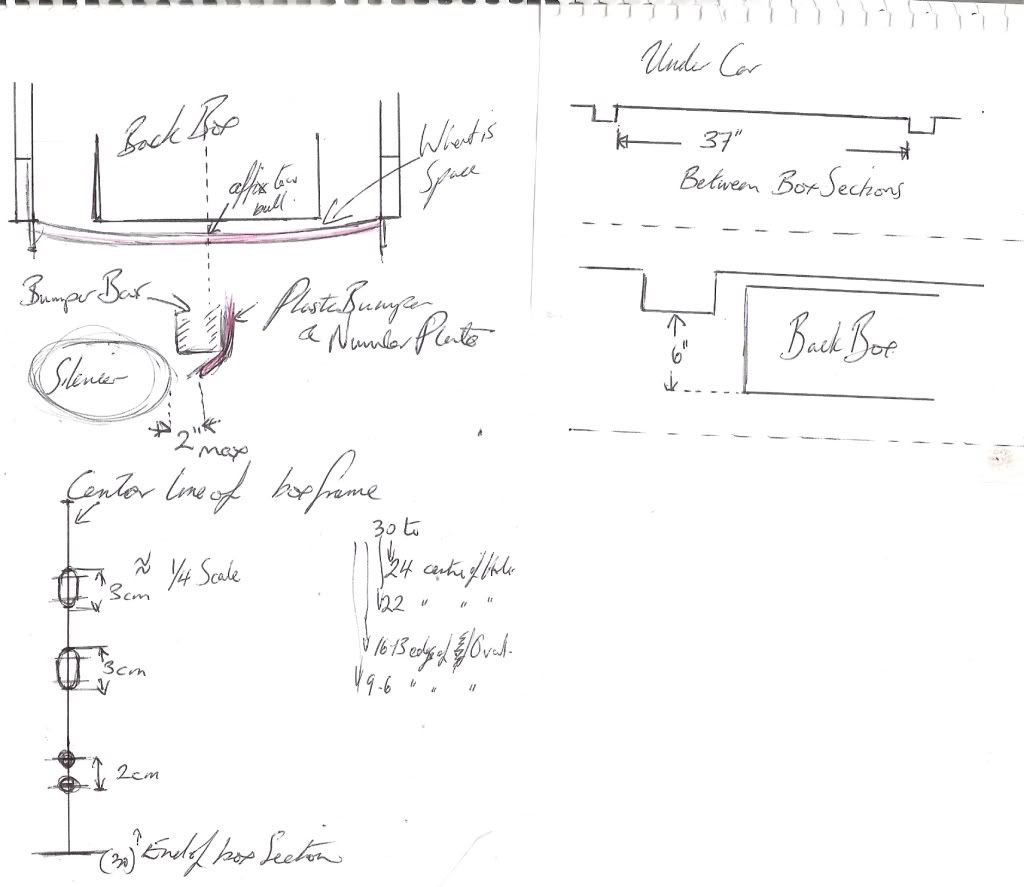 Under Car
37"
Between Box Sections
Back Box
What is
Space
affix tow
ball.
Bumper Bar
Plastic Bumper
& Number Plate
Silencer
2" max
6"
Back Box
Center line of box frame
≈ 1/4 Scale
3cm
3cm
2cm
(30) End of box Section
30 to
24 centre of Hole
22 " " "
16-13 edge of Oval.
9-6 " " "